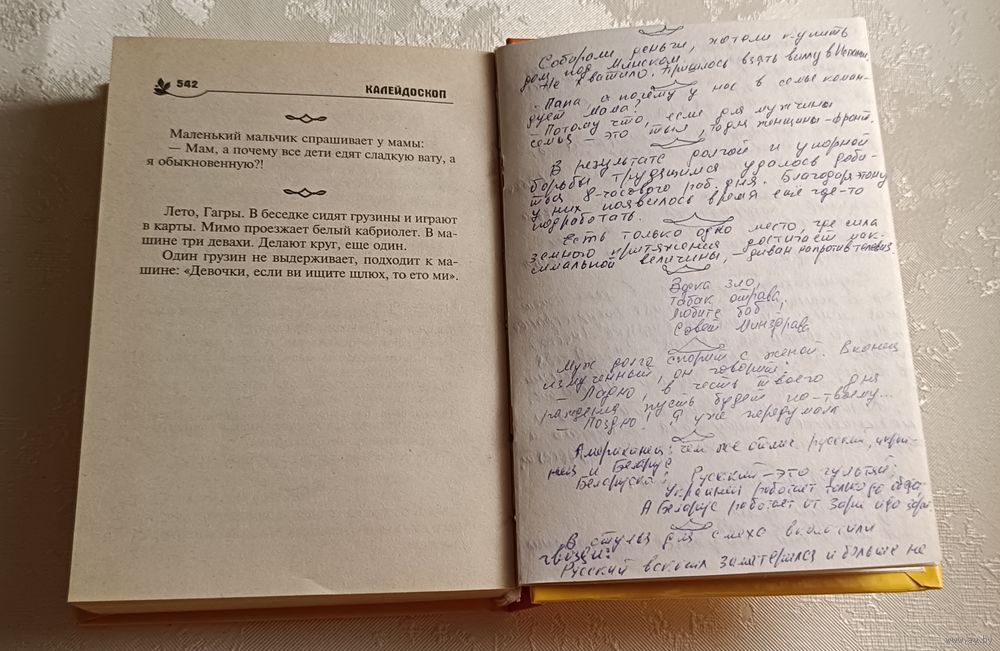 542
КАЛЕЙДОСКОП
Маленький мальчик спрашивает у мамы:
— Мам, а почему все дети едят сладкую вату, а
я обыкновенную?!
Лето, Гагры. В беседке сидят грузины и играют
в карты. Мимо проезжает белый кабриолет. В ма-
шине три девахи. Делают круг, еще один.
Один грузин не выдерживает, подходит к ма-
шине: «Девочки, если ви ищите щлюх, то ето ми».
Собирали деньги, хотели купить
дом, под Минском.
Не хватило. Пришлось взять виллу в Испании.
- Папа, а почему у нас в семье коман-
дует мама?
- Потому что, если для мужчины
семья - это тыл, то для женщины - фронт.
В результате долгой и упорной
борьбы трудящимся удалось доби-
ться 8-часового раб. дня. Благодаря этому
у них появилось время ещё где-то
подработать.
Есть только одно место, где сила
земного притяжения достигает мак-
симальной величины, - диван напротив телевиз.
Водка зло,
Табак отрава,
Любите баб,
Совет Минздрава
Муж долго спорит с женой. В конец
измученный, он говорит:
- Ладно, в честь твоего дня
рождения пусть будет по-твоему...
- Поздно! Я уже передумала
Американец: чем же отлич. русский, украи-
нец и Белорус
Белоруска: Русский - это гультяй,
Украинец работает только до обеда,
А Белорус работает от зари и до зари.
В стулья для смеха
гвозди:
Русский вскочил заматерился и больше не
www.av.by